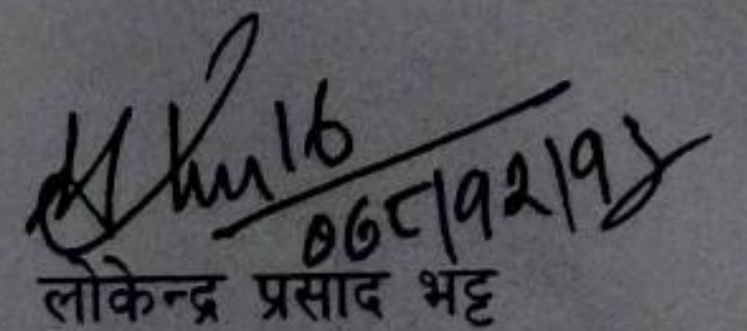 ०७८/१२/१५
लोकेन्द्र प्रसाद भट्ट